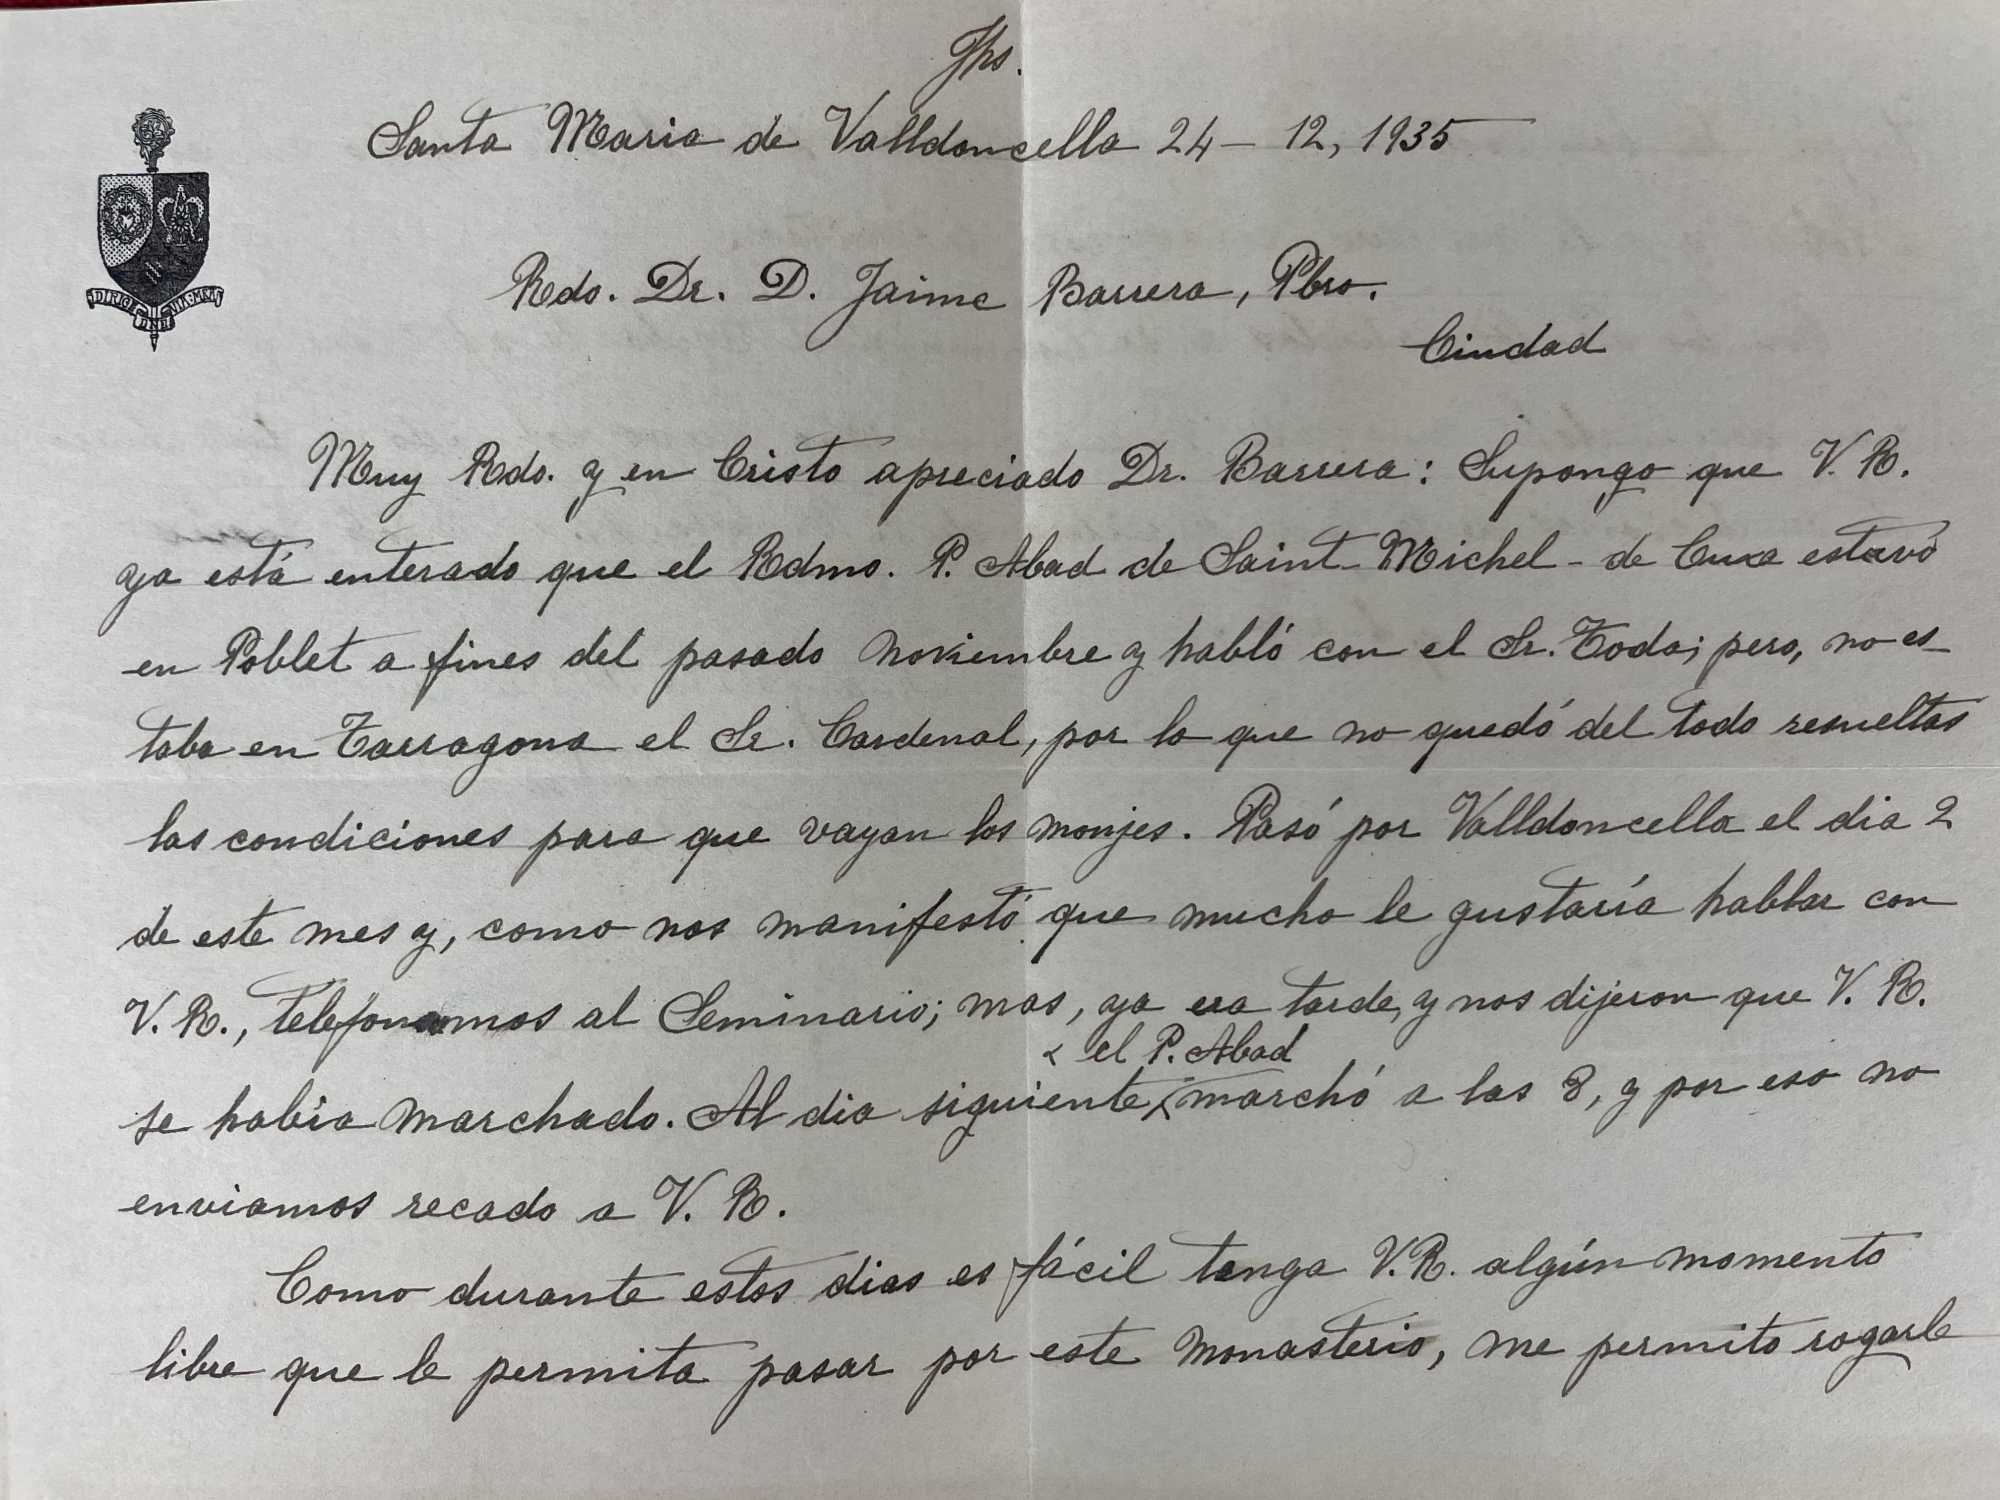 Jhs.
Santa Maria de Valldoncella 24 - 12, 1935
DIRIGE DNE VIA MEA
Rdo. Dr. D. Jaime Barrera, Pbro.
Ciudad
Muy Rdo. y en Cristo apreciado Dr. Barrera: Supongo que V. R.
ya está enterado que el Rdmo. P. Abad de Saint-Michel-de Cuxa estuvo
en Poblet a fines del pasado noviembre y habló con el Sr. Toda; pero, no es-
taba en Tarragona el Sr. Cardenal, por lo que no quedó del todo resueltas
las condiciones para que vayan los monjes. Pasó por Valldoncella el dia 2
de este mes y, como nos manifestó que mucho le gustaría hablar con
V. R., telefonamos al Seminario; mas, ya era tarde, y nos dijeron que V. R.
el P. Abad
se habia marchado. Al dia siguiente marchó a las 8, y por eso no
enviamos recado a V. R.
Como durante estos dias es fácil tenga V. R. algún momento
libre que le permita pasar por este Monasterio, me permito rogarle